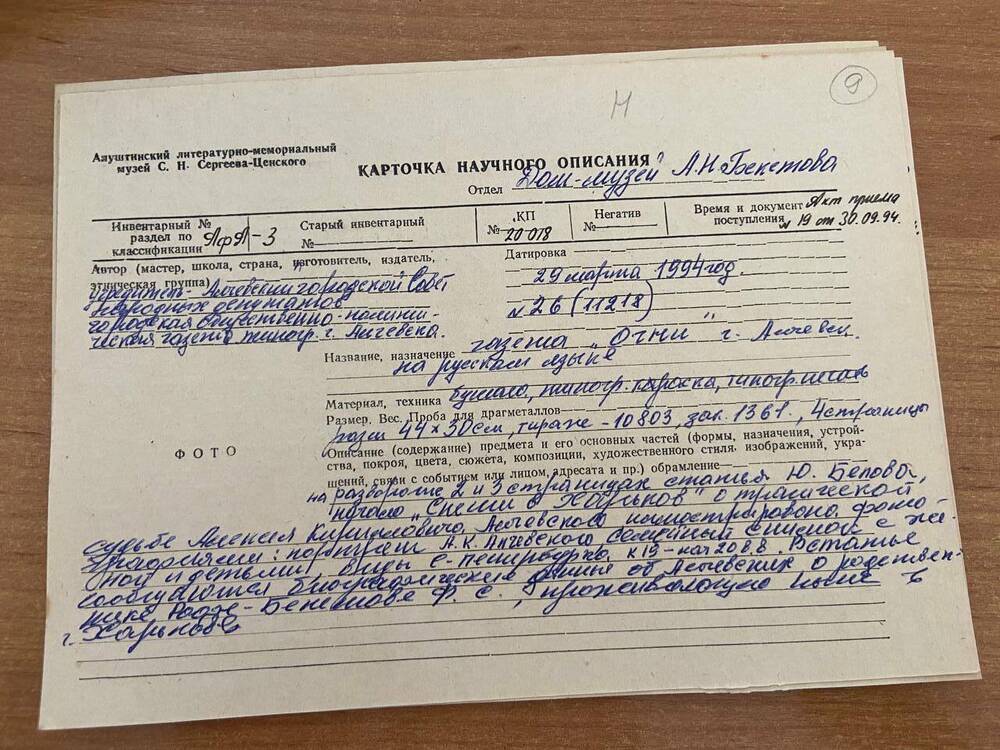 9
Н
Алуштинский литературно-мемориальный
музей С. Н. Сергеева-Ценского
КАРТОЧКА НАУЧНОГО ОПИСАНИЯ
Отдел Дом-музей А.Н. Бекетова
Инвентарный №
раздел по
классификации АфА-3
Старый инвентарный
№
КП
№ 20 018
Негатив
№
Время и документ Акт приема
поступления № 19 от 30.09.94.
Автор (мастер, школа, страна, изготовитель, издатель,
этническая группа)
Учредитель - Алчевский городской Совет
народных депутатов
городская общественно-полити-
ческая газета типогр. г. Алчевска.
Датировка
29 марта 1994 год.
№ 26 (11218)
Название, назначение газета "Огни" г. Алчевск.
на русском языке
Материал, техника бумага, типогр. краска, типогр. печать
Размер. Вес. Проба для драгметаллов
разм 44 × 30 см, тираж - 10803, зак. 1361., 4 страницы
Описание (содержание) предмета и его основных частей (формы, назначения, устрой-
ства, покроя, цвета, сюжета, композиции, художественного стиля, изображений, укра-
шений, связи с событием или лицом, адресата и пр.) обрамление
на развороте 2 и 3 страницах статья Ю. Белова,
начало "Спеши в Харьков" о трагической
судьбе Алексея Кирилловича Алчевского иллюстрировано фото-
графиями: портрет А.К. Алчевского Семейный снимок с же-
ной и детьми Виды С-Петербурга к 19 - нач 20 в.в. В статье
сообщаются биографические данные об Алчевских о родствен-
нике Рофе-Бекетове Ф. С., проживающего ныне в
г. Харькове
ФОТО